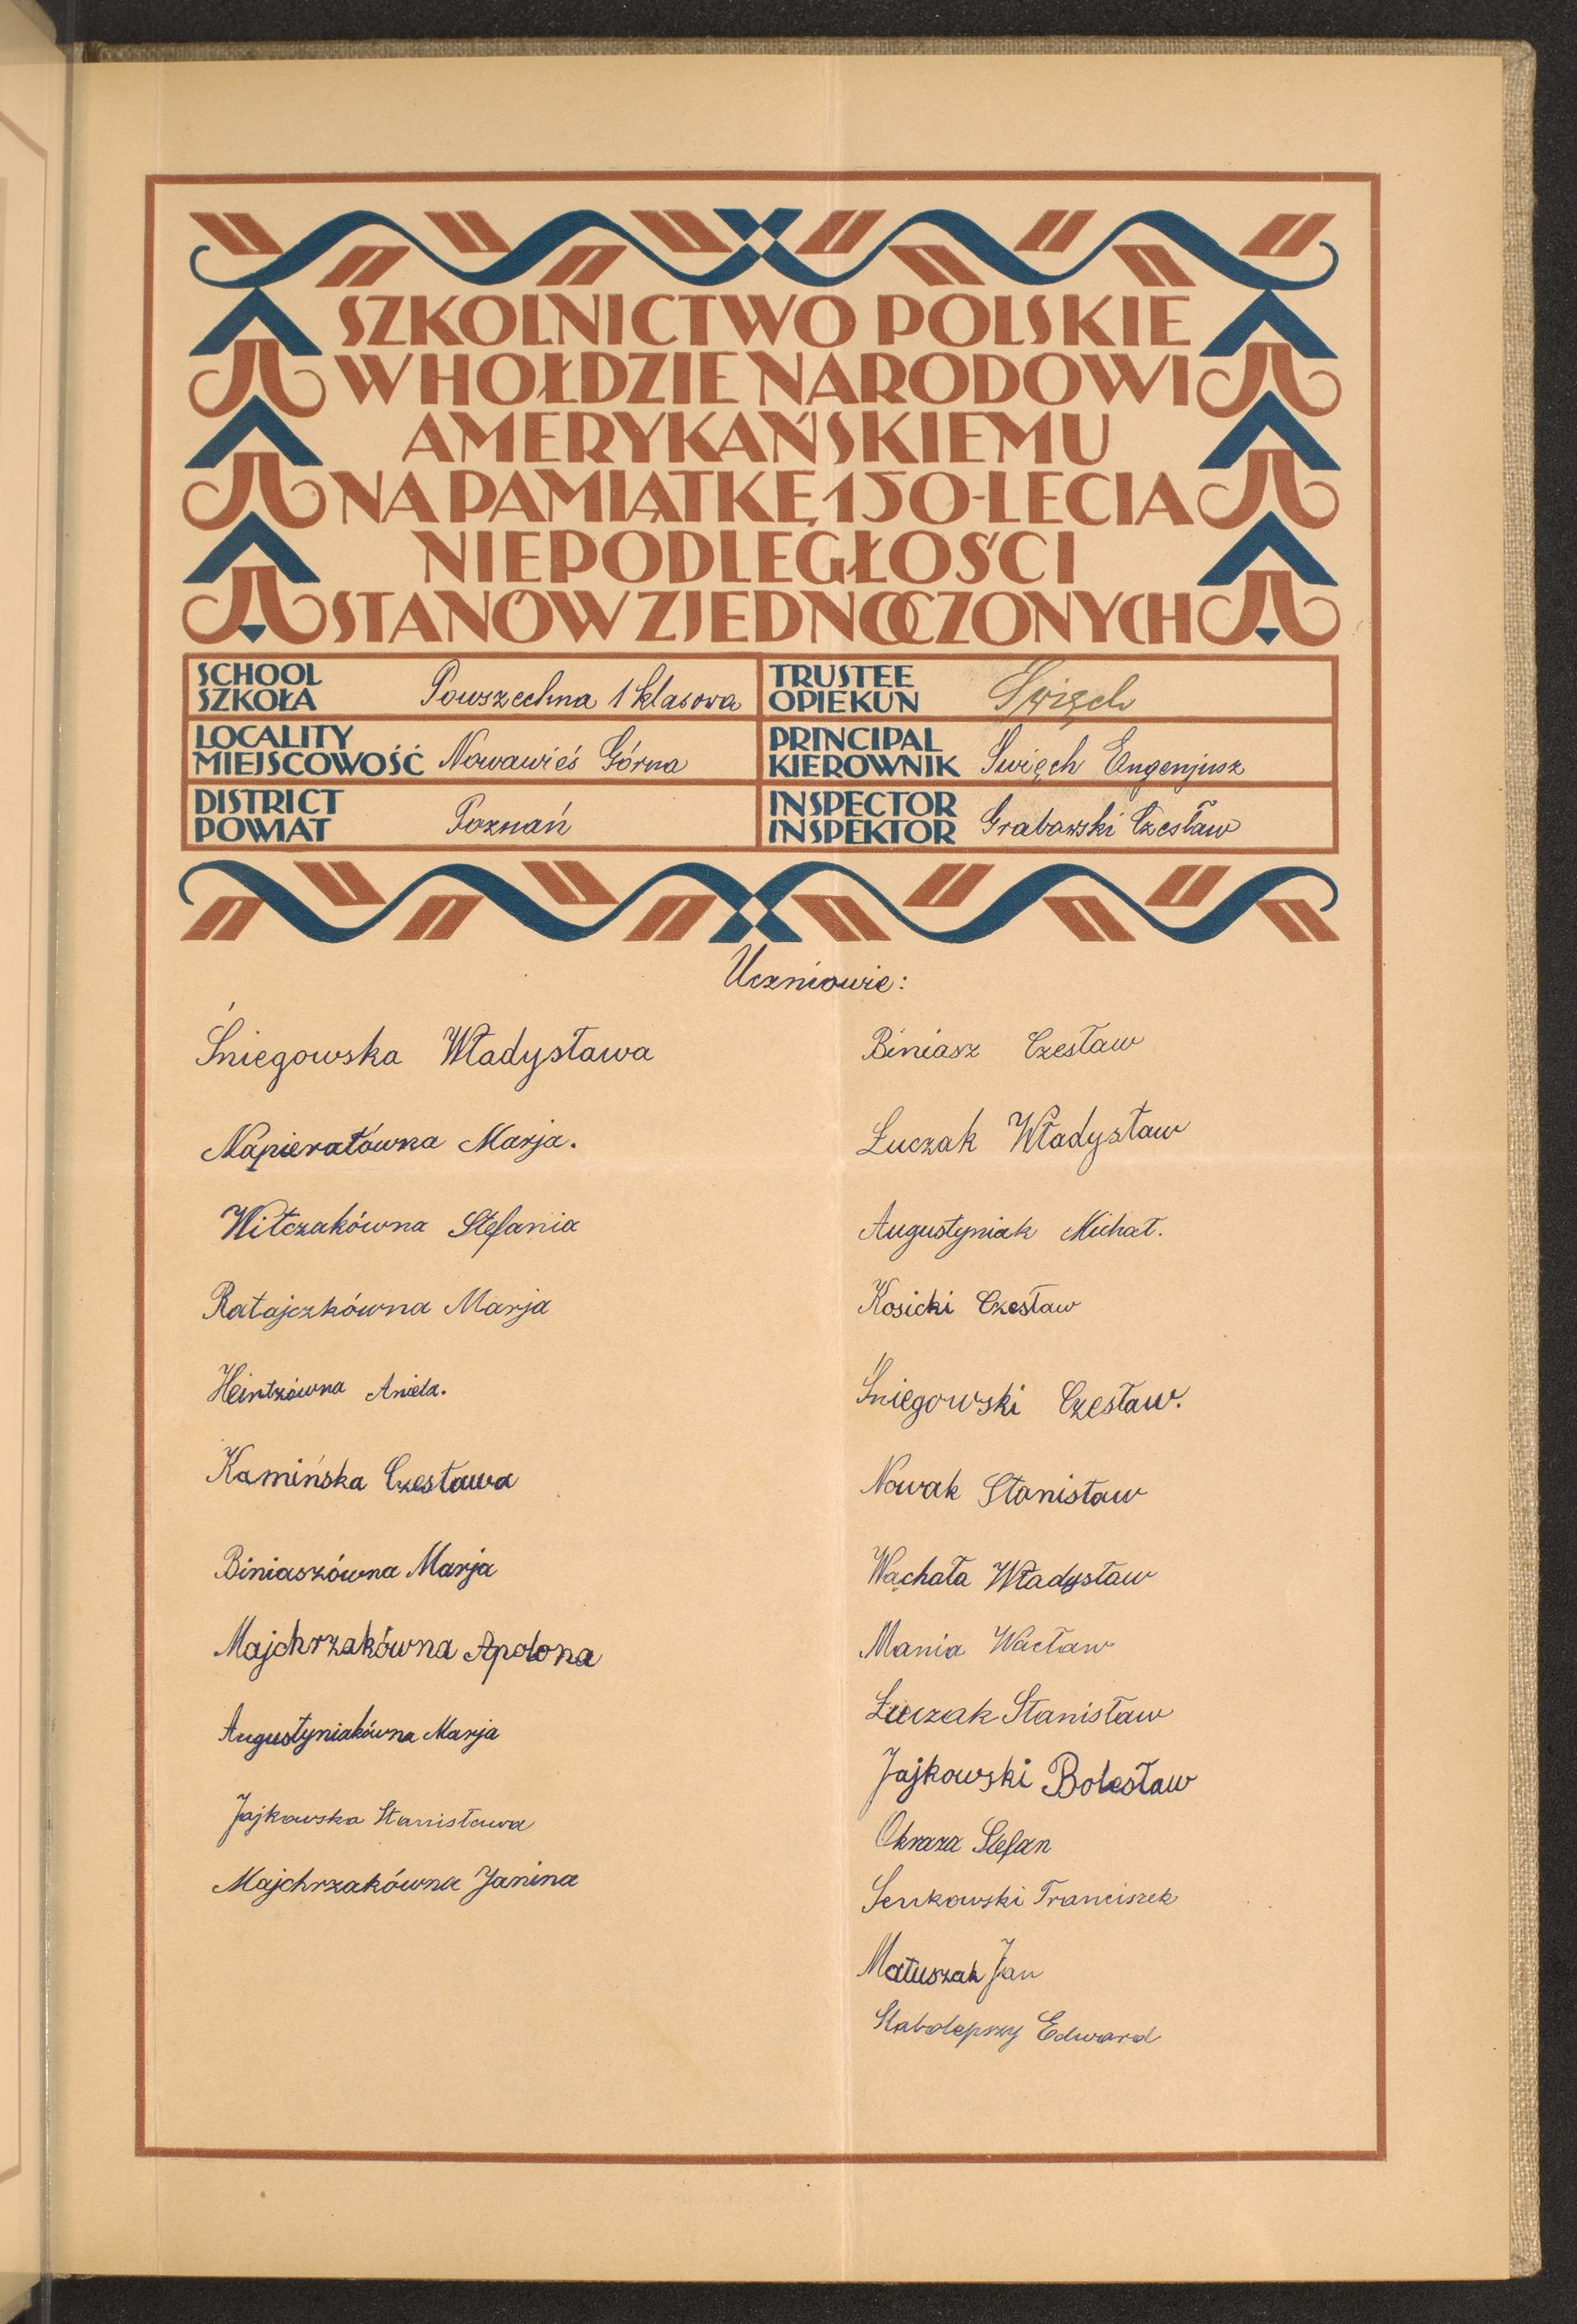 SZKOLNICTWO POLSKIE
W HOŁDZIE NARODOWI
AMERYKAŃSKIEMU
NA PAMIĄTKĘ 150-LECIA
NIEPODLEGŁOŚCI
STANÓW ZJEDNOCZONYCH
SCHOOL
SZKOŁA Powszechna 1 klasowa
TRUSTEE
OPIEKUN Święch
LOCALITY
MIEJSCOWOŚĆ Nowawieś Górna
PRINCIPAL
KIEROWNIK Święch Eugenjusz
DISTRICT
POWIAT Poznań
INSPECTOR
INSPEKTOR Grabowski Czesław
Uczniowie:
Śniegowska Władysława
Napierałówna Marja.
Witczakówna Stefania
Ratajczkówna Marja
Heintzówna Aniela.
Kamińska Czesława
Biniaszówna Marja
Majchrzakówna Apolona
Augustyniakówna Marja
Jajkowska Stanisława
Majchrzakówna Janina
Biniasz Czesław
Łuczak Władysław
Augustyniak Michał.
Kosicki Czesław
Śniegowski Czesław.
Nowak Stanisław
Wąchała Władysław
Mania Wacław
Łuczak Stanisław
Jajkowski Bolesław
Okraza Stefan
Senkowski Franciszek
Matuszak Jan
Słabolepszy Edward